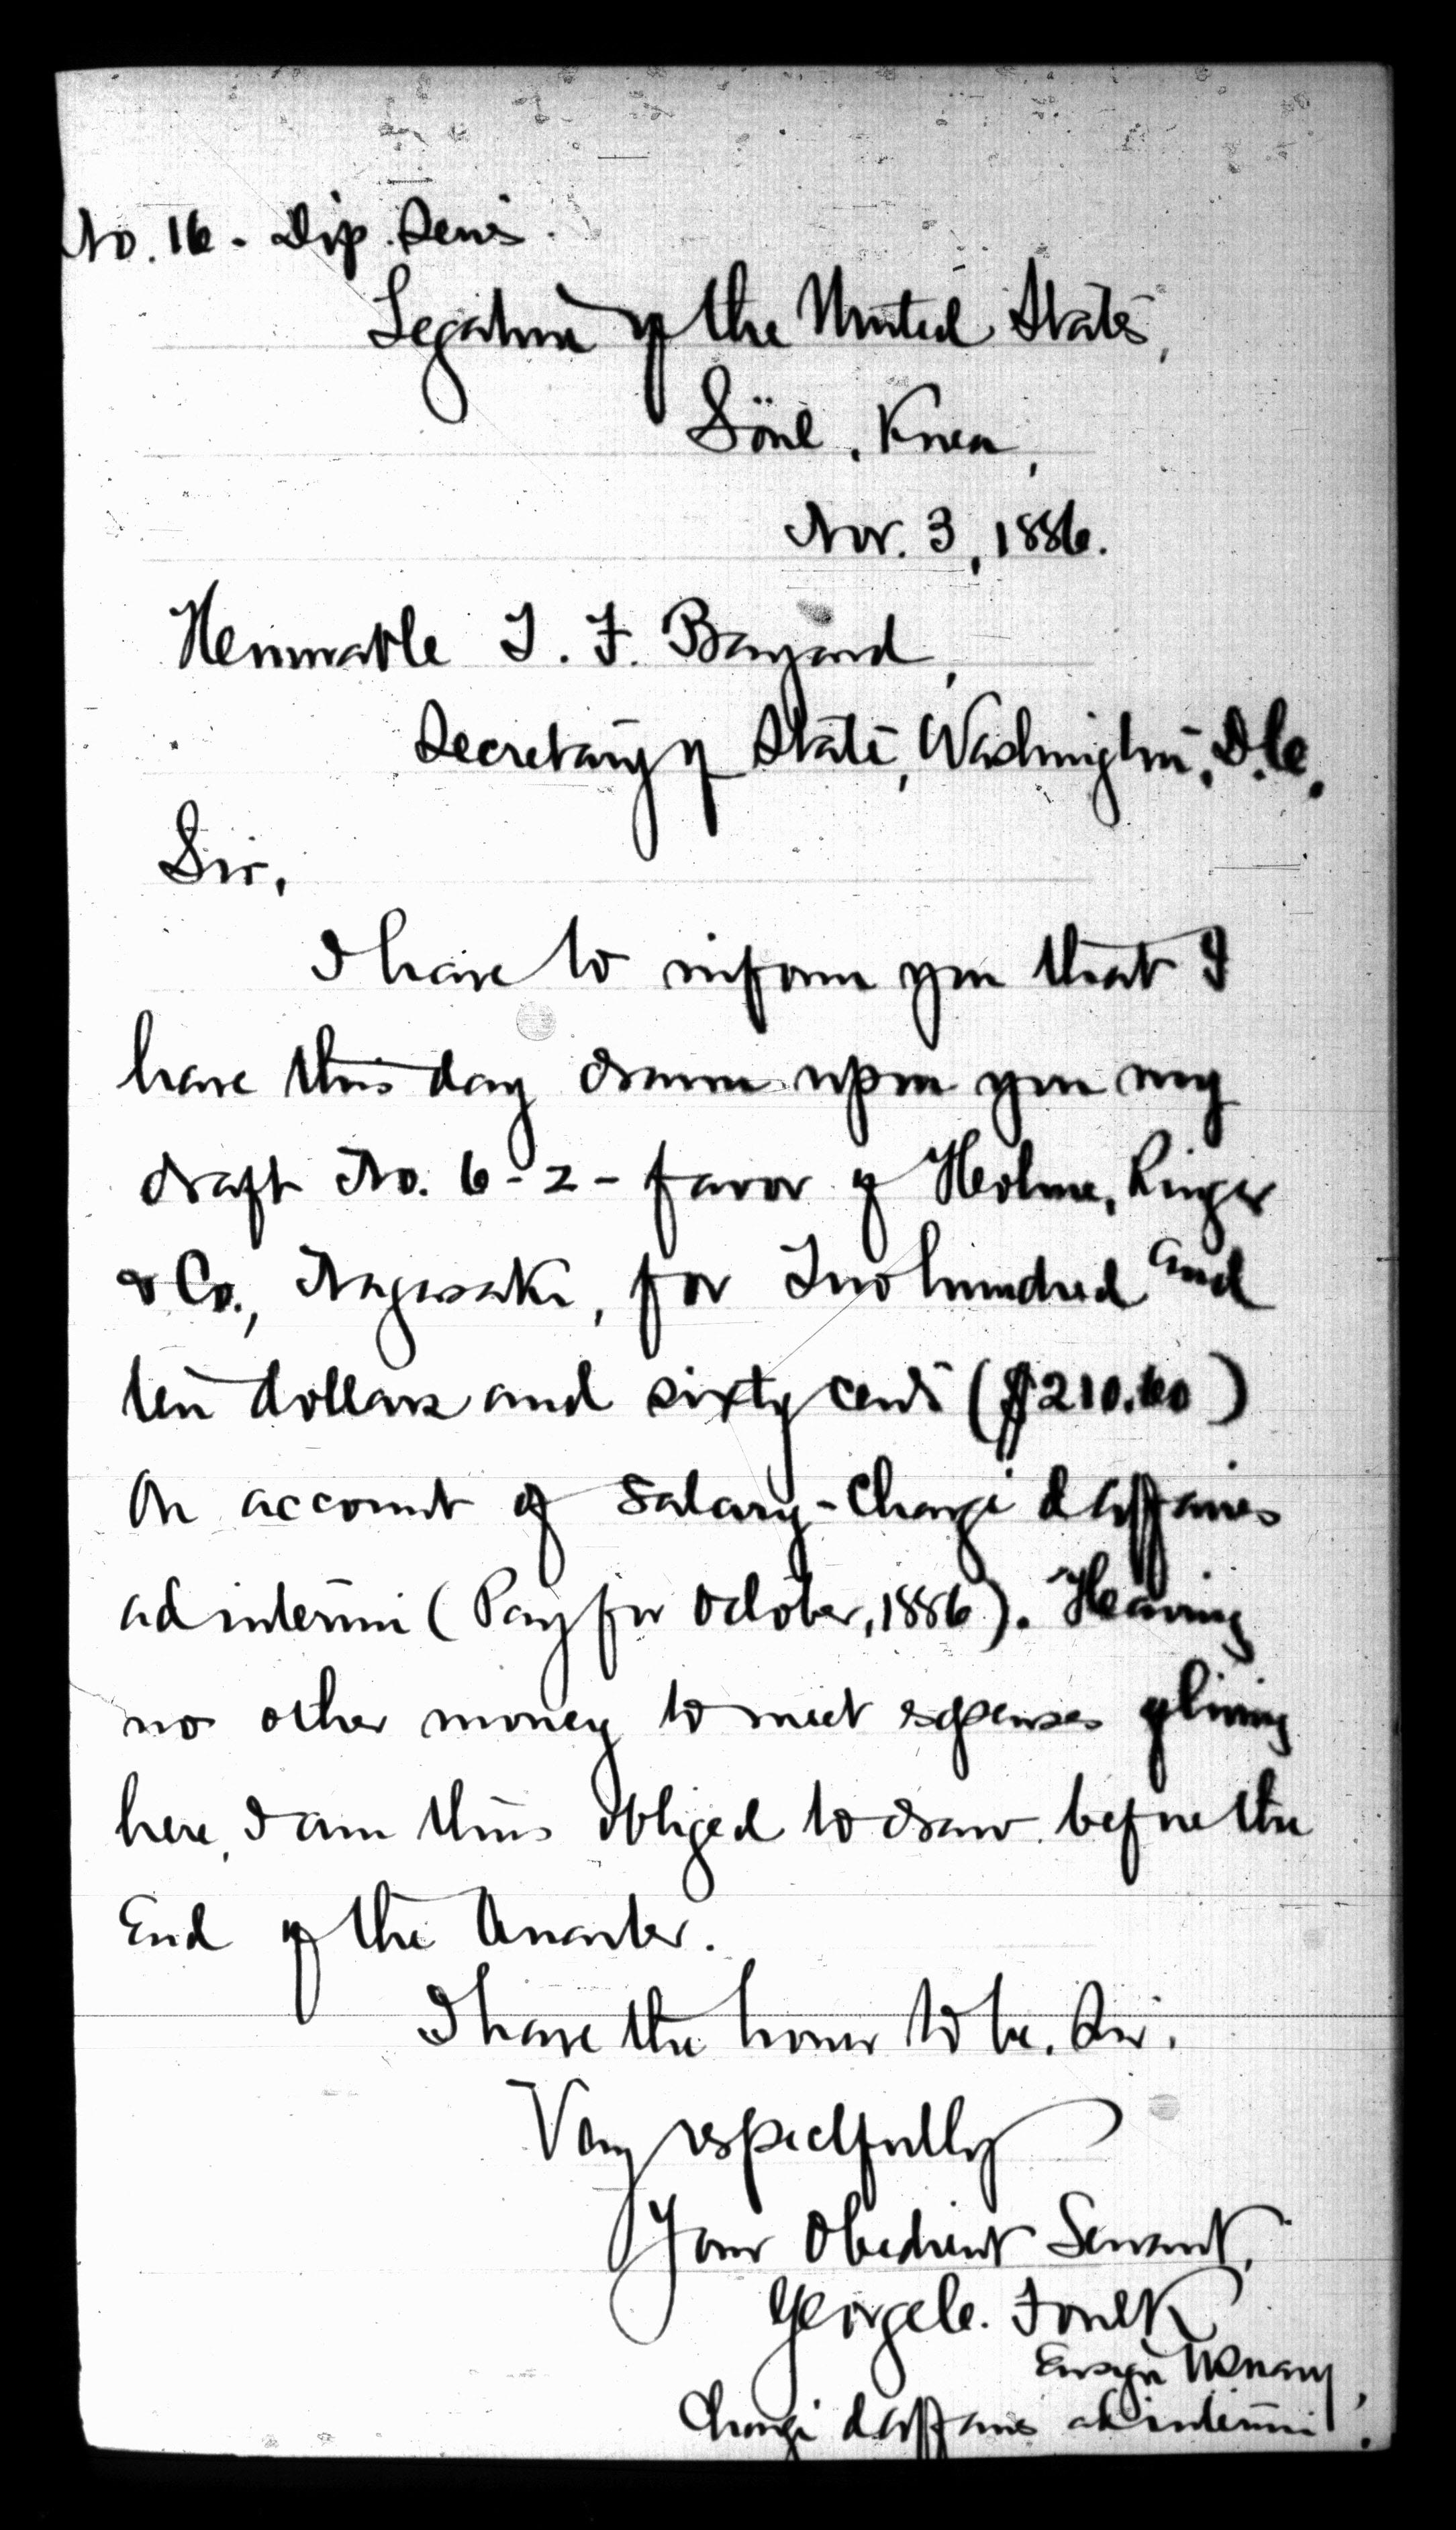 No. 16 - Dip. Series.
Legation of the United States,
Söul, Korea,
Nov. 3, 1886.
Honorable T. F. Bayard,
Secretary of State, Washington, D.C.
Sir,
I have to inform you that I
have this day drawn upon you my
draft No. 6-2- favor of Holme, Ringer
& Co., Nagasaki, for Two hundred and
ten dollars and sixty cents ($210.60)
On account of Salary-Chargé d'Affaires
ad interim (Pay for October, 1886). Having
no other money to meet expenses of living
here, I am thus obliged to draw before the
End of the Quarter.
I have the honor to be, Sir,
Very respectfully
Your Obedient Servant,
George C. Foulk
Ensign U.S. Navy,
Chargé d'Affaires ad interim.